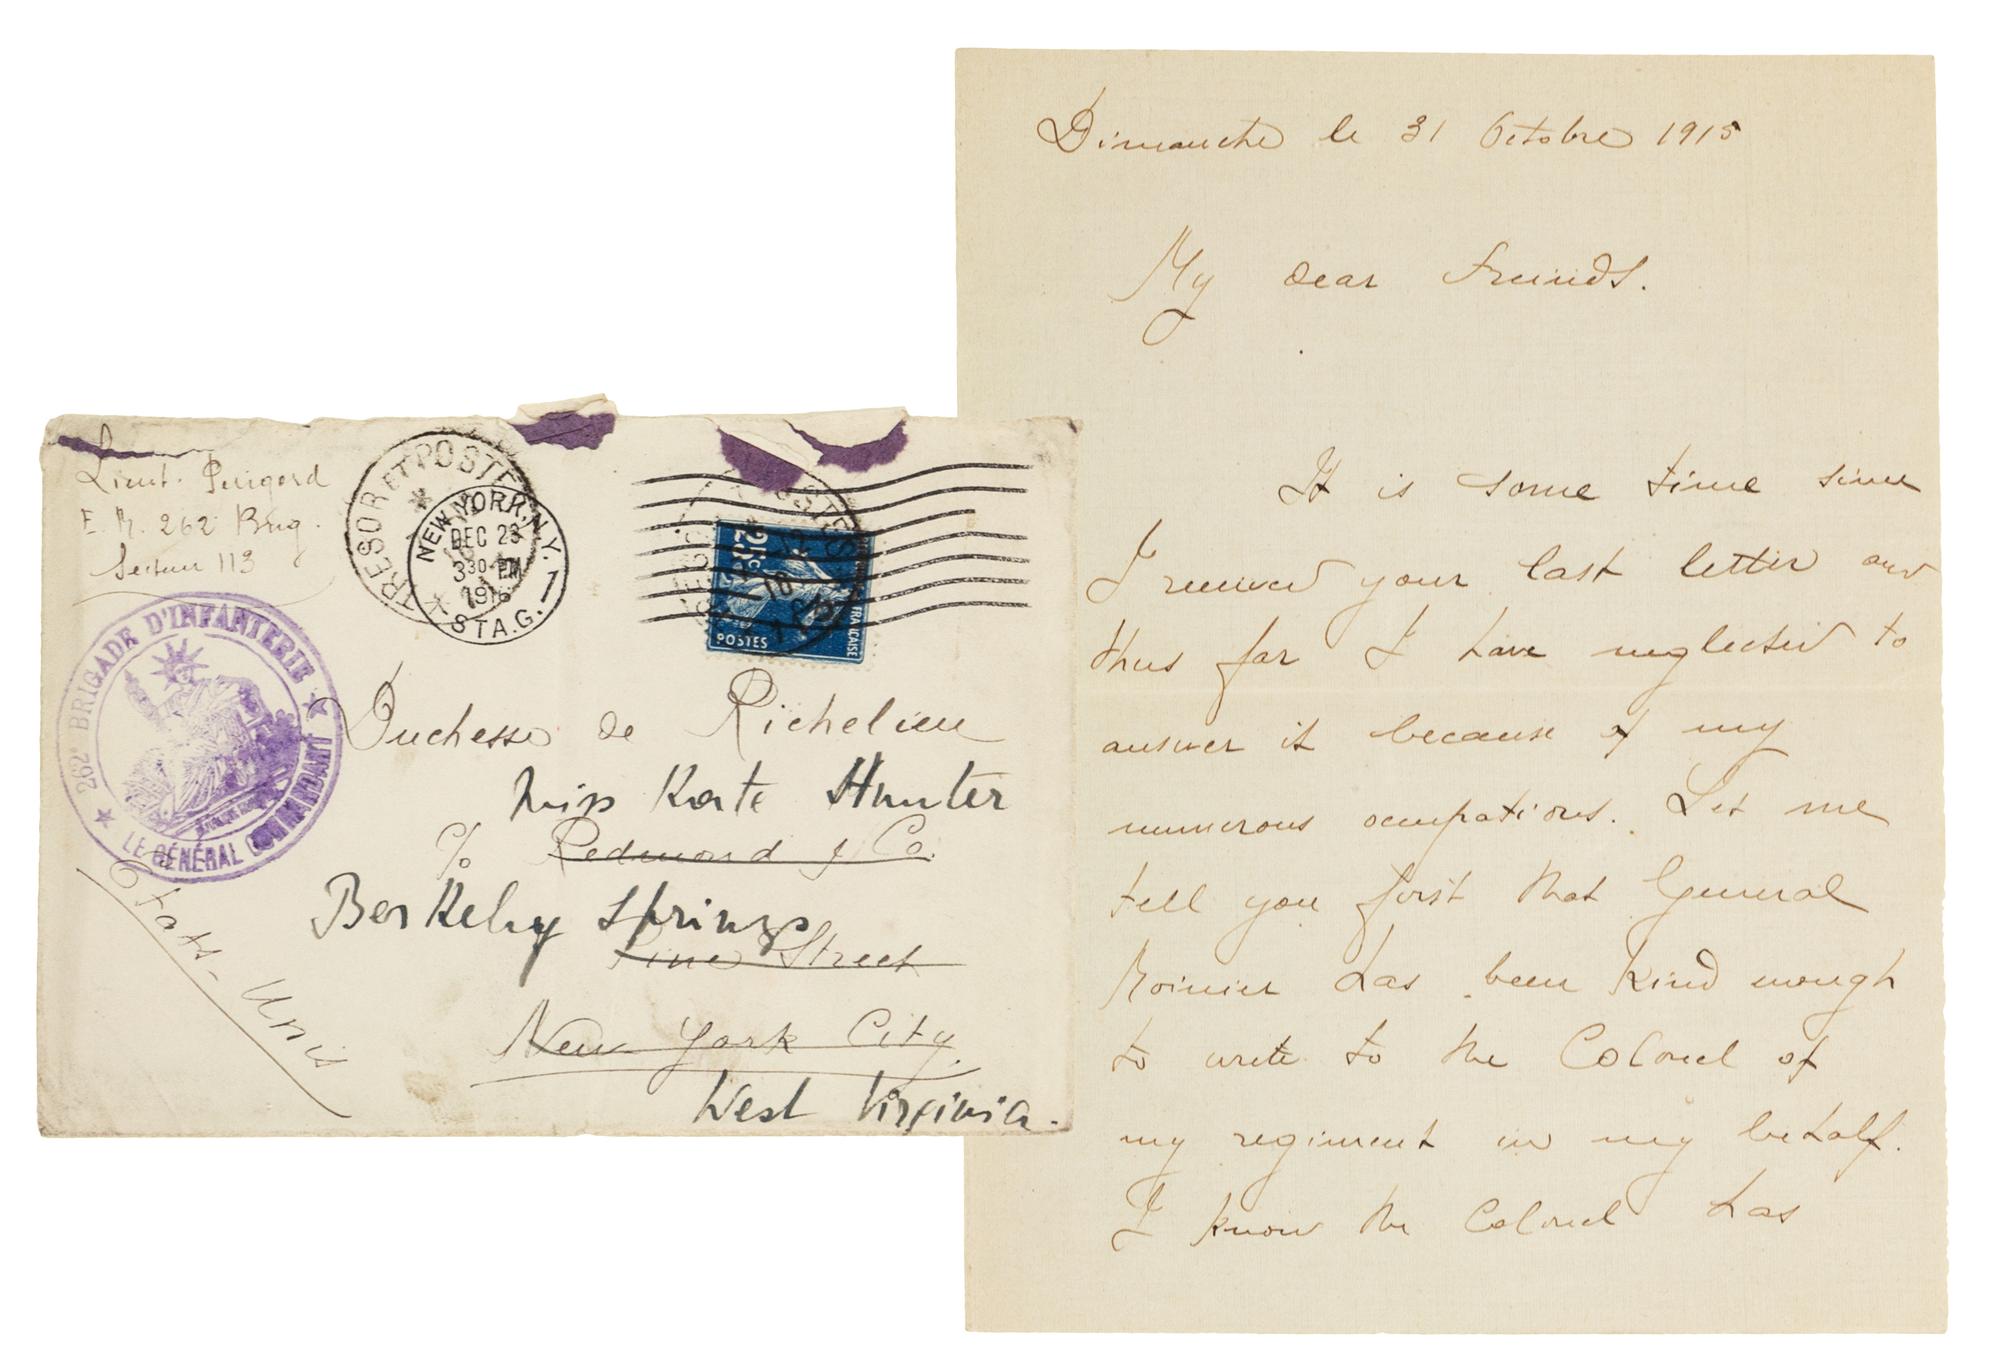 Lieut. Perigord
E. M. 262 Brig.
Secteur 113
TRESOR ET POSTES
NEW YORK, N.Y.
DEC 23
3 30 PM
1916
STA. G. 1
25c
POSTES
FRANÇAISE
262e BRIGADE D'INFANTERIE
LE GÉNÉRAL COMMANDANT
Duchesse de Richelieu
Miss Kate Hunter
c/o Redmond & Co.
Berkeley Springs
Pine Street
New York City
West Virginia.
Etats-Unis
Dimanche le 31 Octobre 1915
My dear Friends.
It is some time since
I received your last letter and
thus far I have neglected to
answer it because of my
numerous occupations. Let me
tell you first that General
has been kind enough
to write to the Colonel of
my regiment in my behalf.
I know the Colonel has